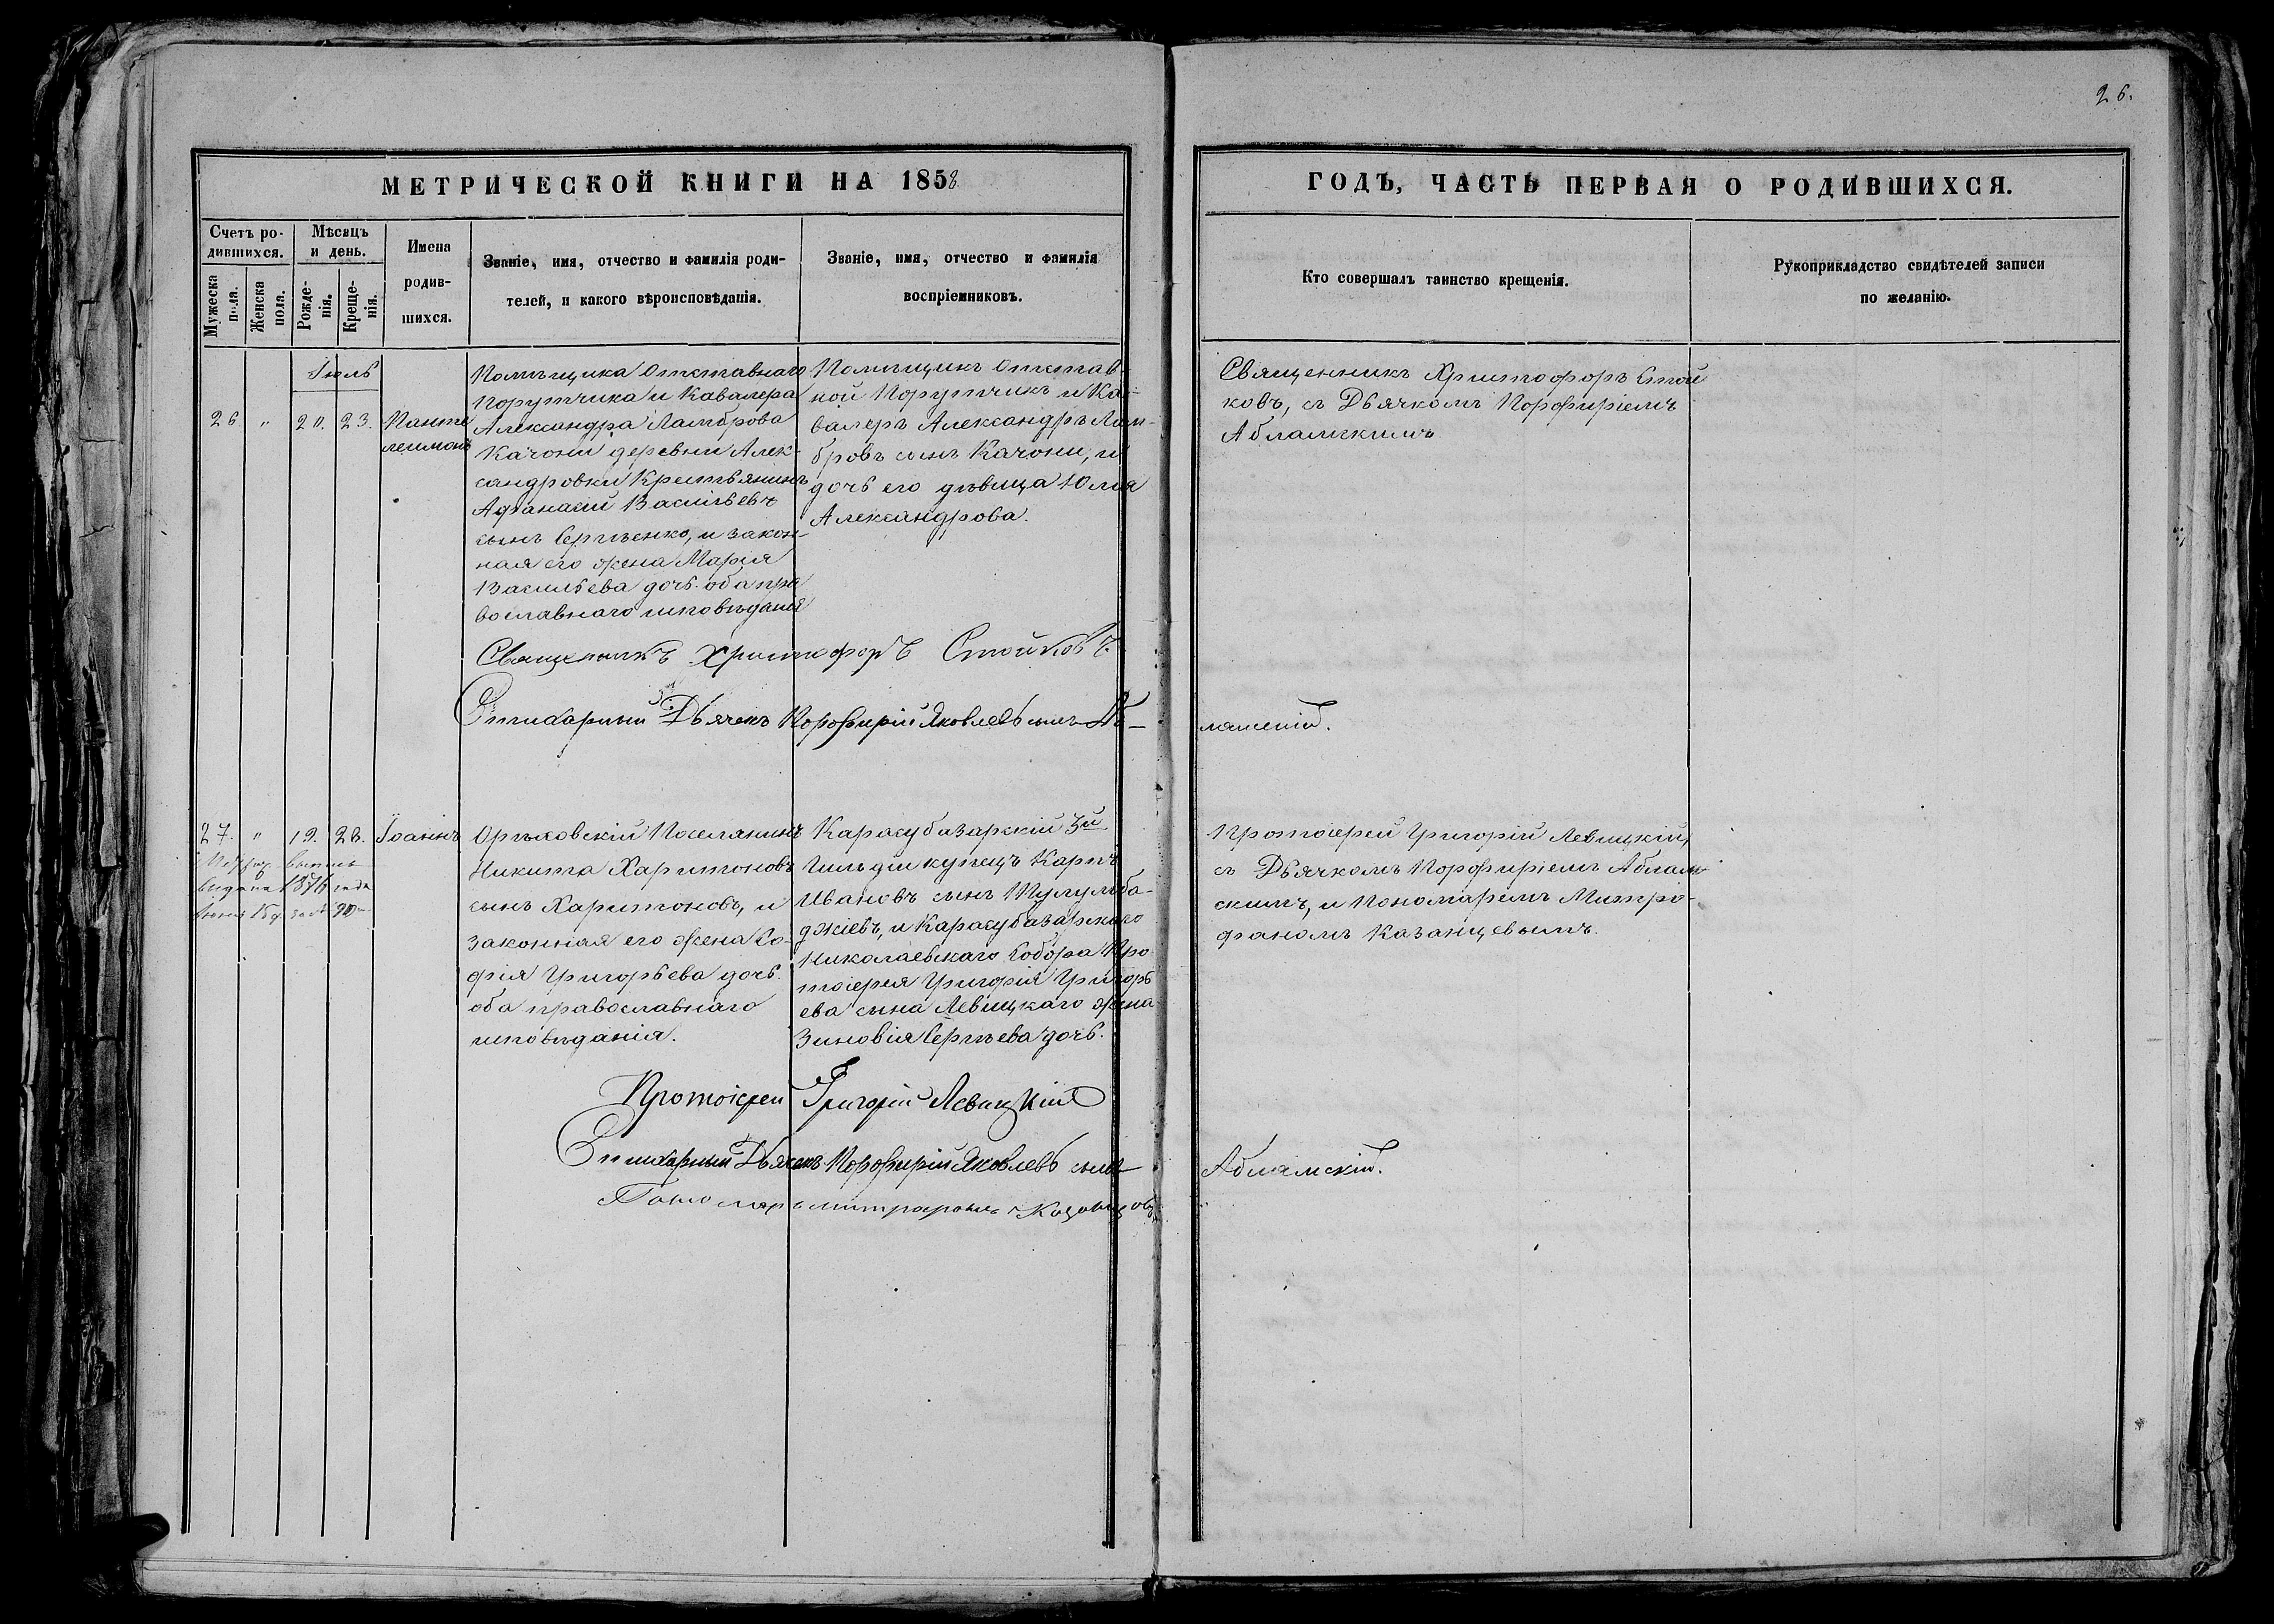 26.
МЕТРИЧЕСКОЙ КНИГИ НА 1858
ГОДЪ, ЧАСТЬ ПЕРВАЯ О РОДИВШИХСЯ.
Счетъ ро-
дившихся.
Мужеска пола.
Женска пола.
Мѣсяцъ
и день.
Рожде-
нія.
Креще-
нія.
Имена
родив-
шихся.
Званіе, имя, отчество и фамилія роди-
телей, и какого вѣроисповѣданія.
Званіе, имя, отчество и фамилія
воспріемниковъ.
Кто совершалъ таинство крещенія.
Рукоприкладство свидѣтелей записи
по желанію.
Іюль
26. " 20. 23.
Панте
леимонъ
Помѣщика Отставнаго
Порутчика и Кавалера
Александра Ламброва
Качони деревни Алек-
сандровки Крестьянинъ
Афанасій Васильевъ
сынъ Сергѣенко, и закон-
ная его жена Марія
Васильева дочь. оба пра
вославнаго исповѣданія
Помѣщикъ Отстав-
ной Порутчикъ и Ка-
валеръ Александръ Лам-
бровъ сынъ Качони, и
дочь его дѣвица Юлія
Александрова.
Священникъ Христофоръ Стой
ковъ, съ Дьячкомъ Порфиріемъ
Абламскимъ
Священникъ Христофоръ Стойковъ.
Стихарный Дьячекъ Порфирій Яковлевъ сынъ Аб-
ламскій.
27. " 19. 28. Іоаннъ
выпись
выдана 1876 года
Орѣховскій Поселянинъ
Никита Харитоновъ
сынъ Харитоновъ, и
законная его жена Со-
фія Григорьева дочь.
оба православнаго
исповѣданія.
Карасубазарскій 3й
Гильдіи купецъ Карпъ
Ивановъ сынъ
джіевъ, и Карасубазарскаго
Николаевскаго Собора Про
тоіерея Григорія Григорь
ева сына Левицкаго жена
Зиновія Сергѣева дочь.
Протоіерей Григорій Левицкій,
съ Дьячкомъ Порфиріемъ Аблам-
скимъ, и Пономаремъ Митро-
фаномъ Казанцевымъ.
Протоіерей Григорій Левицкій
Стихарный Дьячекъ Порфирій Яковлевъ сынъ
Абламскій.
Пономарь Митрофанъ Казанцовъ